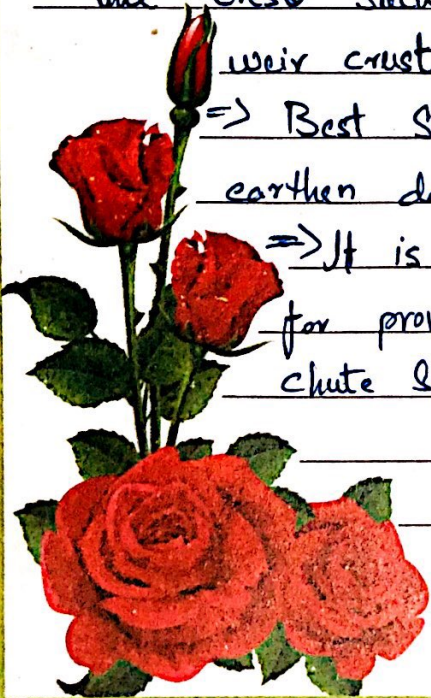 weir crust
=> Best S
earthen d
=> It is
for prov
Chute S